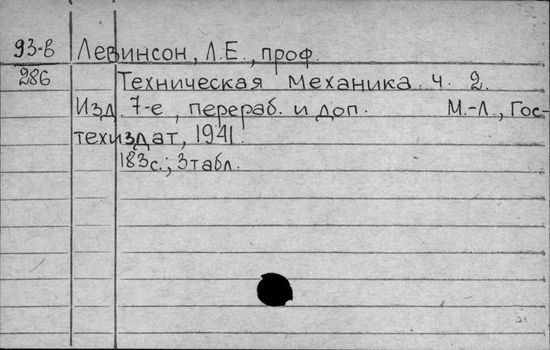 93-в Левинсон, Л.Е., проф.
286 Техническая механика. ч. 2.
Изд. 7-е, перераб. и доп. М.-Л., Гос-
техиздат, 1941.
183с.; 3табл.